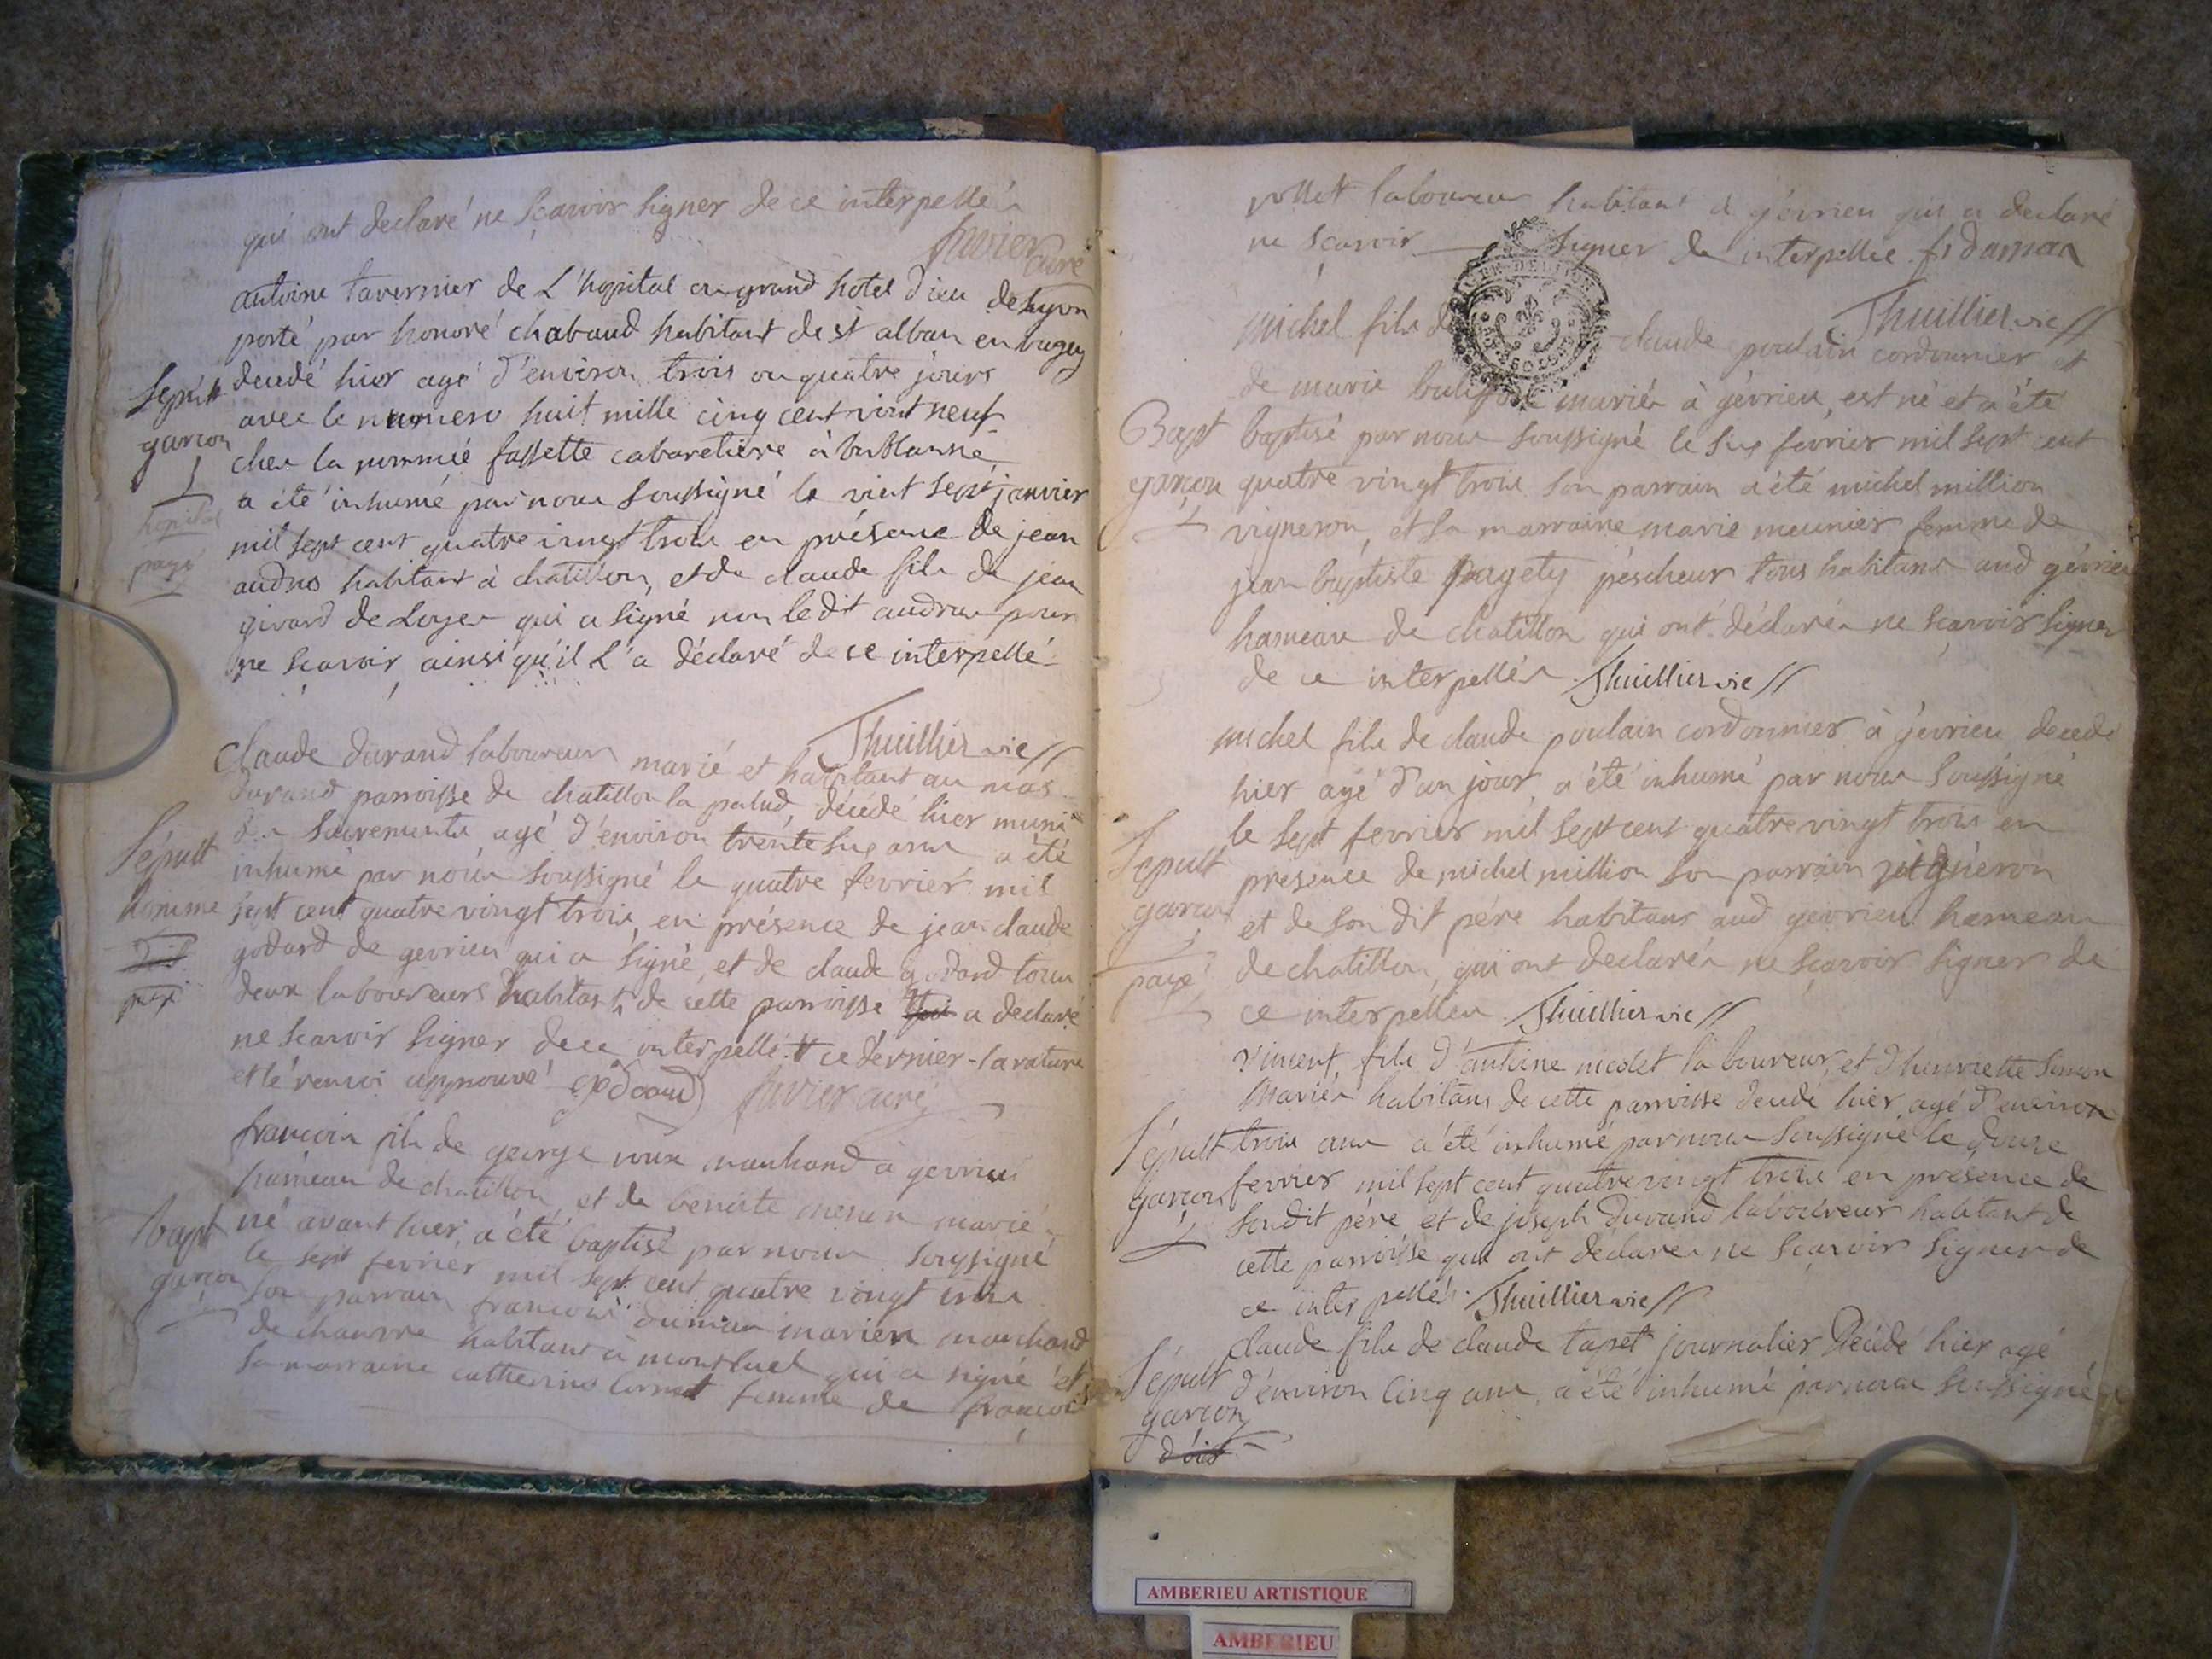 qui ont declaré ne sçavoir signer de ce interpellés
Juvier curé
antoine tavernier de L'hopital ou grand hotel dieu de Lyon
porté par honoré chabaud habitant de st alban en bugey
Sepult decedé hier agé d'environ trois ou quatre jours
garcon avec le numero huit mille cinq cent vint neuf
chez la nommée fassette cabaretiere à bublanne
hopital a été inhumé par nous soussigné le vint sept janvier
payé mil sept cent quatre vingt trois en présence de jean
habitant à chatillon, et de claude fils de jean
girard de Loyes qui a signé non le dit pour
ne scavoir ainsi qu'il L'a déclaré de ce interpellé
Thuillier vic
claude durand laboureur marié et habitant au mas
durand parroisse de chatillon la palud, décédé hier muni
Sépult des sacrements agé d'environ trente six ans a été
inhumé par nous soussigné le quatre fevrier mil
homme sept cent quatre vingt trois, en présence de jean claude
doit godard de gevrieu qui a signé, et de claude godard tous
payé deux laboureurs habitants de cette parroisse qui a declaré
ne scavoir signer de ce interpellé ce dernier - la rature
et le renvoi approuvé Juvier curé
francois fils de george roux marchand a gevrieu
hameau de chatillon et de benoite mariés
bapt né avant hier, a été baptisé par nous soussigné
le sept fevrier mil sept cent quatre vingt trois
garçon son parrain francois marchand
de chanvre habitant a montluel qui a signé et
sa marraine catherine femme de francois
laboureur habitant a gévrieu qui a declaré
ne scavoir signer de interpellée
Thuillier vic
michel fils de claude poulain cordonnier et
de marie mariés à gévrieu, est né et a été
Bapt baptisé par nous soussigné le six fevrier mil sept cent
garçon quatre vingt trois son parrain a été michel million
vigneron, et sa marraine marie meunier femme de
jean baptiste pagety péscheur tous habitans aud gévrieu
hameau de chatillon qui ont déclarés ne scavoir signer
de ce interpellés Thuillier vic
michel fils de claude poulain cordonnier à gevrieu decedé
hier agé d'un jour, a été inhumé par nous soussigné
le sept fevrier mil sept cent quatre vingt trois en
Sepult presence de michel million son parrain vigneron
garcon et de son dit pére habitans aud gevrieu hameau
payé de chatillon, qui ont declarés ne sçavoir signer de
ce interpellés Thuillier vic
vincent, fils d'antoine nicolet laboureur, et d'henriette simon
mariés habitans de cette parroisse decedé hier, agé d'environ
Sépult trois ans a été inhumé par nous soussigné le douze
garçon fevrier mil sept cent quatre vingt trois en presence de
sondit pére et de joseph durand laboureur habitant de
cette parroisse qui ont declarés ne sçavoir signer de
ce interpellés Thuillier vic
claude fils de claude tapet journalier décedé hier agé
Sépult d'environ cinq ans, a été inhumé par nous soussigné
garcon
doit
AMBERIEU ARTISTIQUE
AMBERIEU